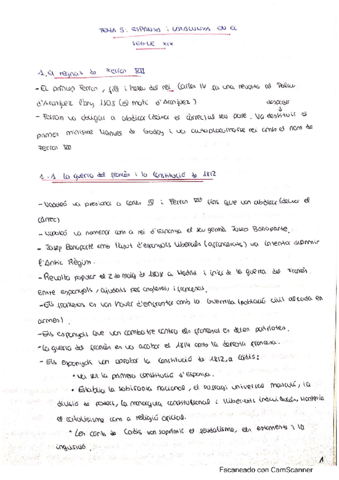 TEMA 5: ESPANYA I CATALUNYA EN EL
SEGLE XIX
1. El regnat de Ferran VII
- El príncep Ferran, fill i hereu del rei Carles IV fa una revolta al Palau
d'Aranjuez l'any 1808 (el motí d'Aranjuez)
- Ferran va obligar a abdicar el seu pare. Va destituir el
primer ministre Manuel de Godoy i va autoproclamar-se rei amb el nom de
Ferran VII
1.1 La guerra del francès i la constitució de 1812
- Napoleó va pressionar a Carles IV i Ferran VII fins que van abdicar (deixar el
càrrec)
- Napoleó va nomenar com a rei d'Espanya el seu germà Josep Bonaparte.
- Josep Bonaparte amb l'ajut d'espanyols liberals (afrancesats) va intentar suprimir
l'Antic Règim.
- Revolta popular el 2 de maig de 1808 a Madrid i inici de la guerra del francès.
Entre espanyols, ajudats per anglesos i francesos.
- Els francesos es van haver d'enfrontar amb la guerrilla (població civil aixecada en
armes).
- Els espanyols que van combatre contra els francesos es deien patriotes.
- La guerra del francès es va acabar el 1814 amb la derrota francesa.
- Els espanyols van aprovar la constitució de 1812, a Cadis:
• Va ser la primera constitució d'Espanya.
• Establia la sobirania nacional, el sufragi universal masculí, la
divisió de poders, la monarquia constitucional i llibertats individuals. Mantenia
el catolicisme com a religió oficial.
• Les corts de Cadis van suprimir el feudalisme, els estaments i la
inquisició.
1
Escaneado con CamScanner